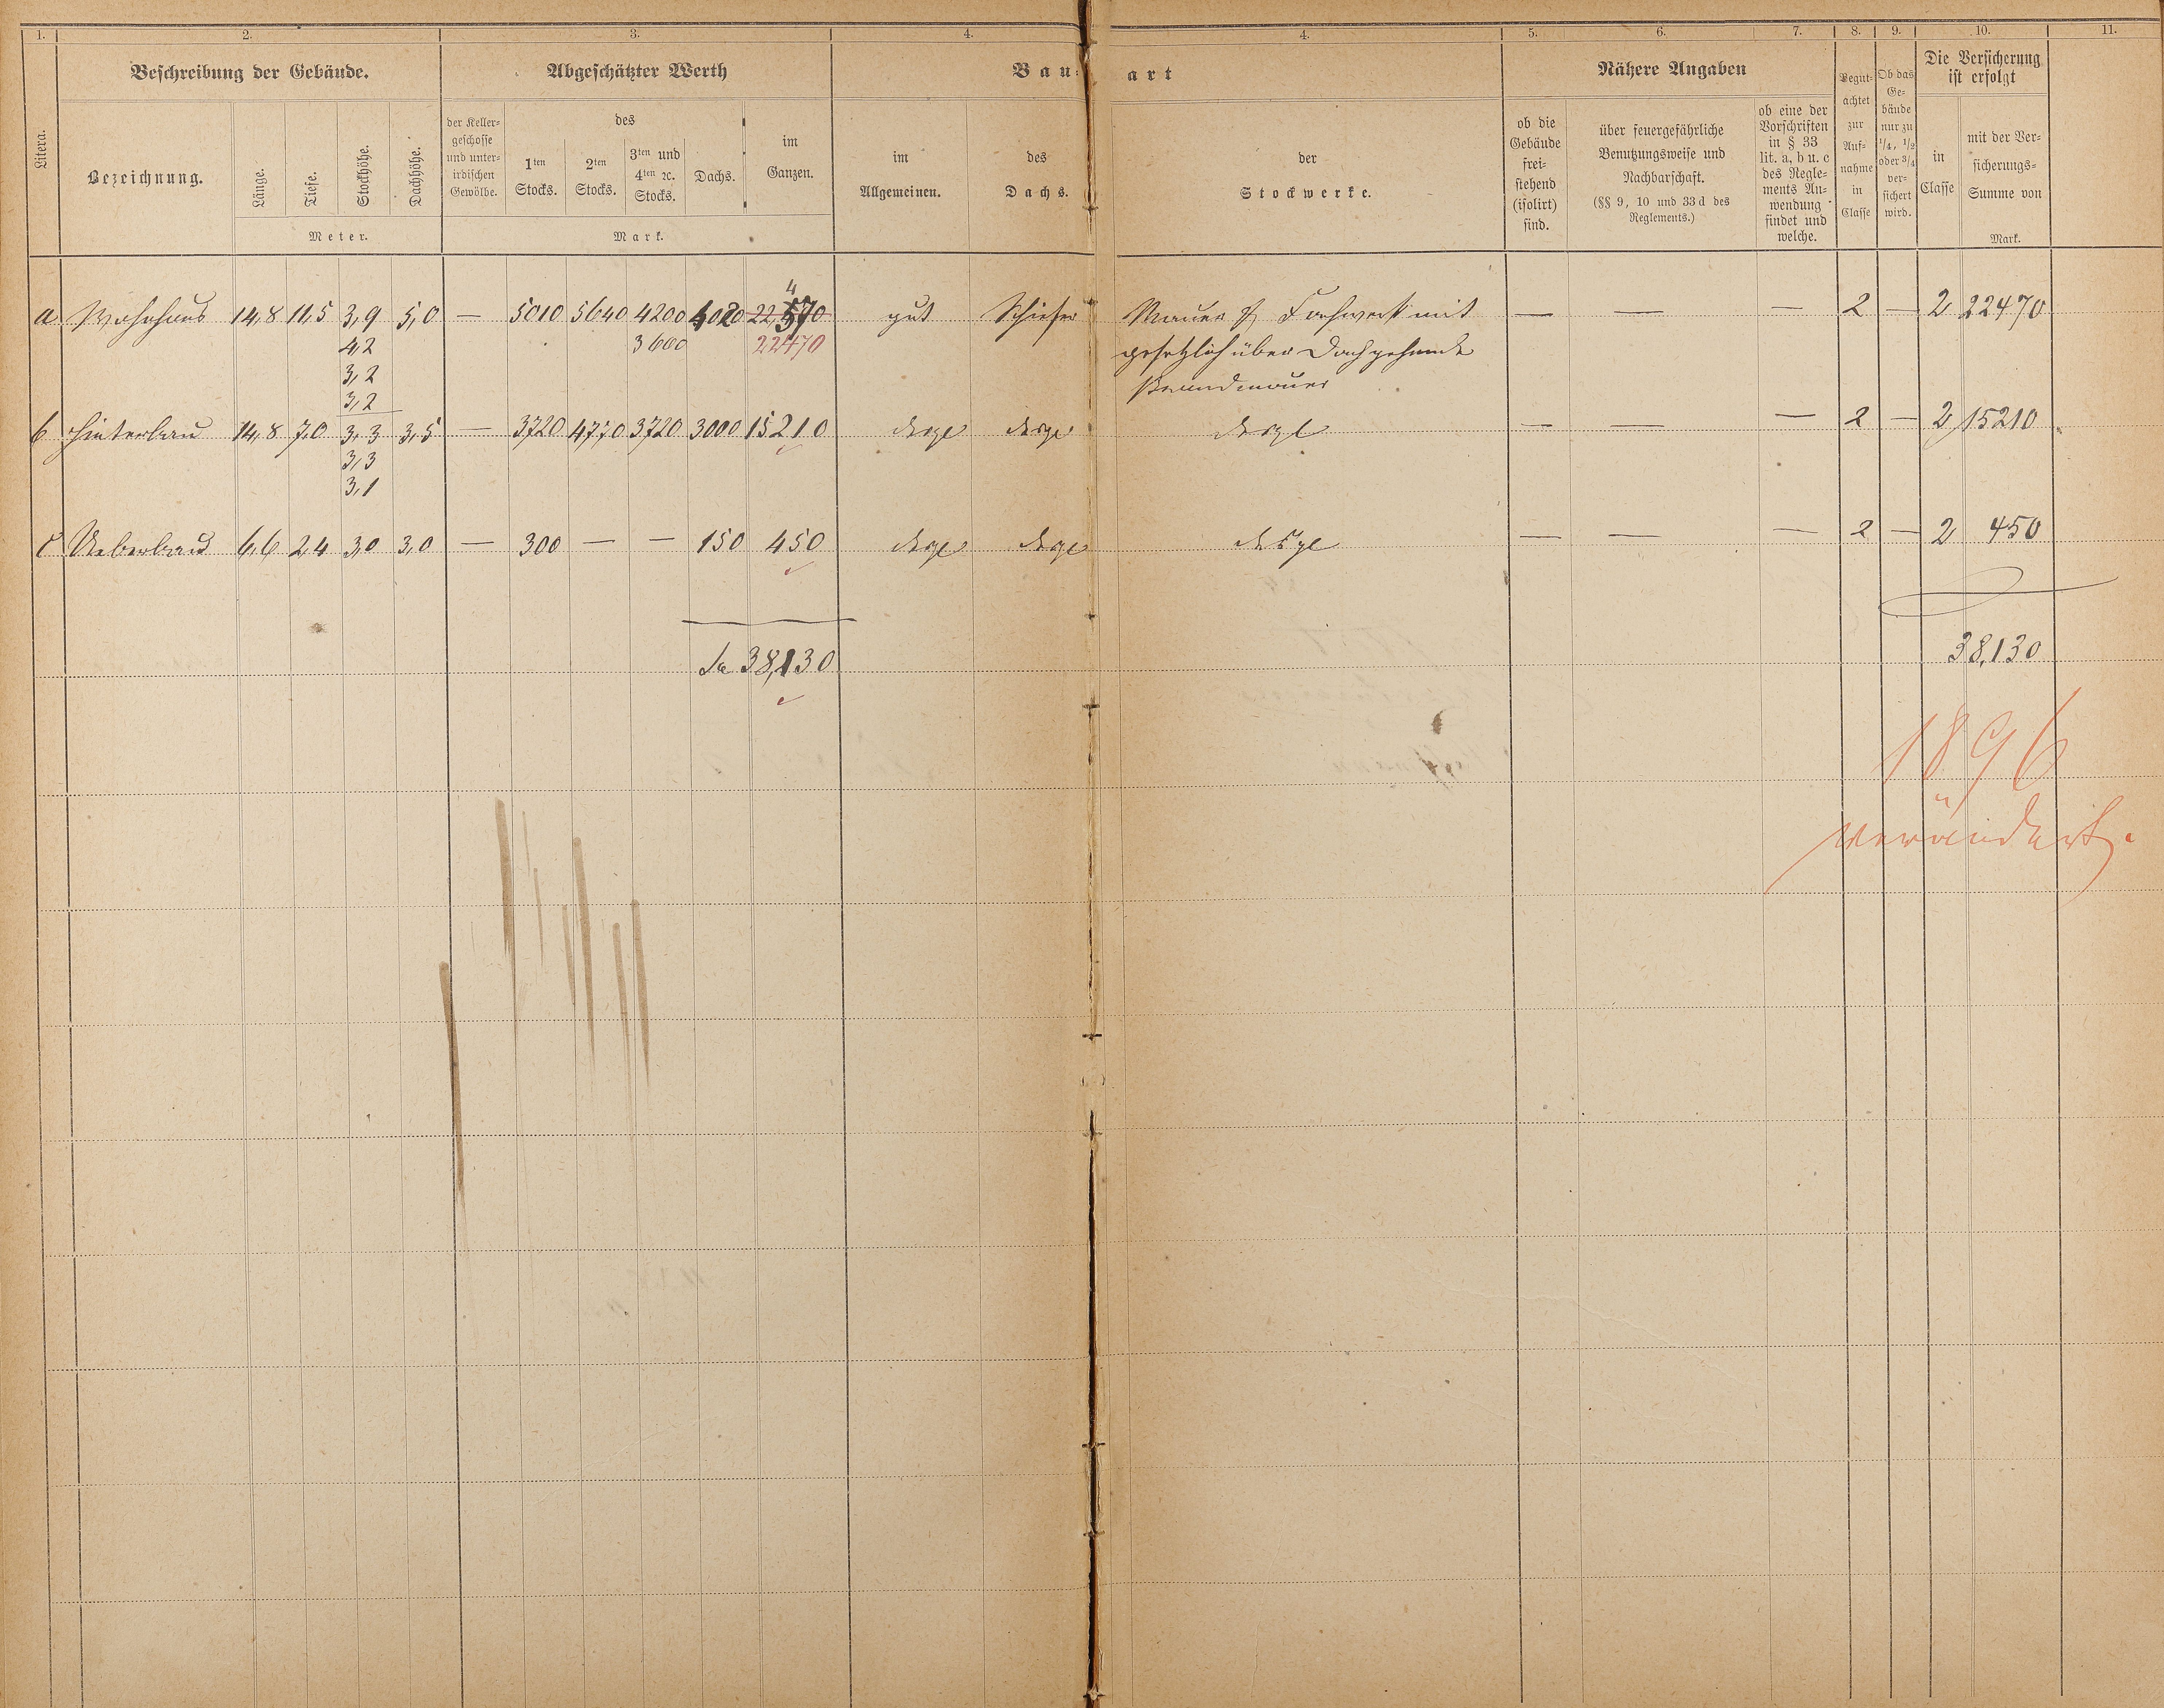 1. 2. 3. 4. 4. 5. 6. 7. 8. 9. 10. 11.
Litera.
Beschreibung der Gebäude.
Bezeichnung.
Länge.
Tiefe.
Stockhöhe.
Dachhöhe.
Meter.
Abgeschätzter Werth
der Keller-
geschosse
und unter-
irdischen
Gewölbe.
des
1ten
Stocks.
2ten
Stocks.
3ten und
4ten ꝛc.
Stocks.
Dachs.
im
Ganzen.
Mark.
Bau-
art
im
Allgemeinen.
des
Dachs.
der
Stockwerke.
Nähere Angaben
ob die
Gebäude
frei-
stehend
(isolirt)
sind.
über feuergefährliche
Benutzungsweise und
Nachbarschaft.
(§§ 9, 10 und 33d des
Reglements.)
ob eine der
Vorschriften
in § 33
lit. a, b u. c
des Regle-
ments An-
wendung
findet und
welche.
Begut-
achtet
zur
Auf-
nahme
in
Classe
Ob das
Ge-
bäude
nur zu
1/4, 1/2
oder 3/4
ver-
sichert
wird.
Die Versicherung
ist erfolgt
in
Classe
mit der Ver-
sicherungs-
Summe von
Mark.
4
a Wohnhaus 14,8 11,5 3,9 5,0 — 5010 5640 4200 4020 22,570 gut Schiefer Mauer & Fachwerk mit — — — 2 — 2 22470
4,2 3600 22470 gesetzlich über Dach gehende
3,2 Brandmauer
3,2
b Hinterbau 14,8 7,0 3,3 3,5 — 3720 4770 3720 3000 15210 desgl desgl desgl — — — 2 — 2 15210
3,3
3,1
c Ueberbau 6,6 2,4 3,0 3,0 — 300 — — 150 450 desgl desgl desgl — — — 2 — 2 450
Sa 38,130 38,130
1896
verändert.